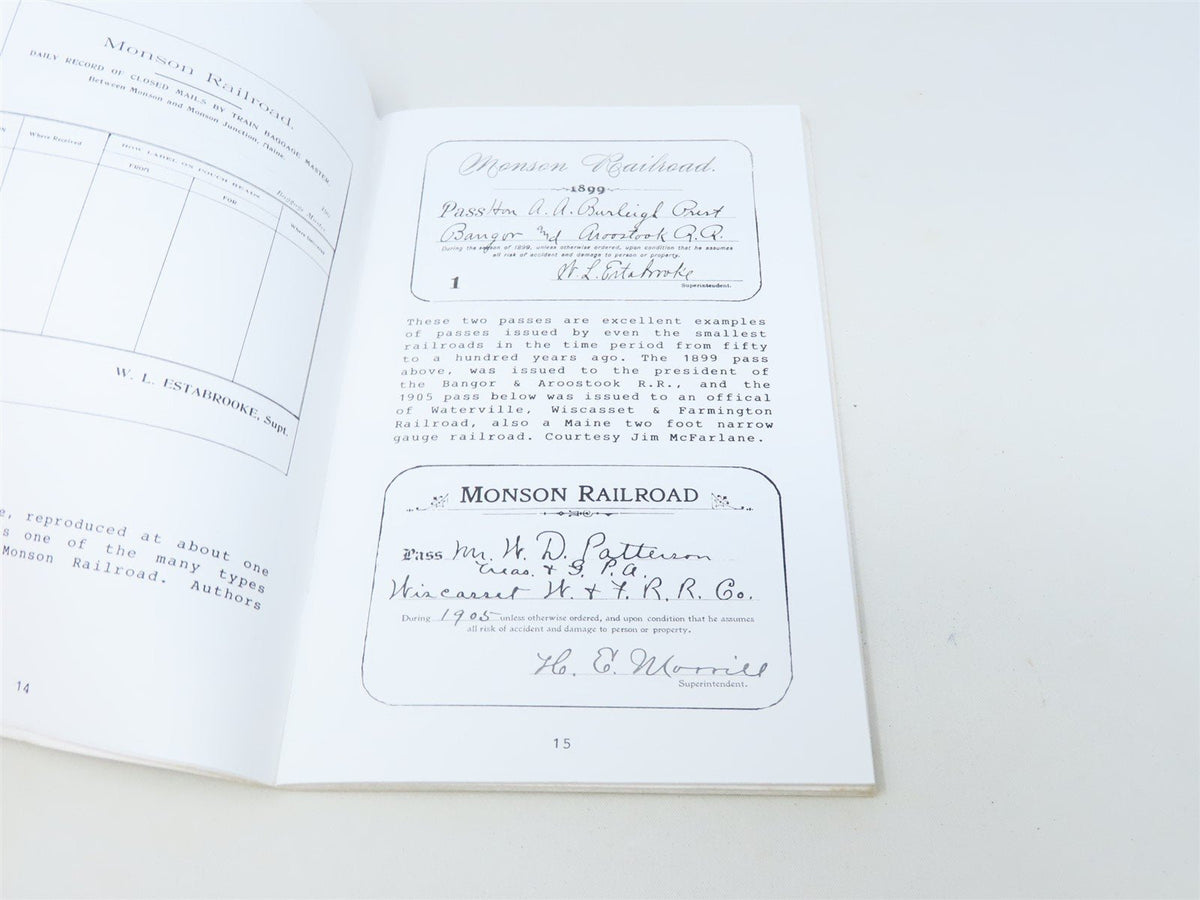 Monson Railroad.
DAILY RECORD OF CLOSED MAILS BY TRAIN BAGGAGE MASTER
Between Monson and Monson Junction, Maine.
Baggage Master. 190
ON
Where Received
DISC LABEL ON POUCH READS
FROM
FOR
Where Delivered
W. L. ESTABROOKE, Supt.
e, reproduced at about one
s one of the many types
Monson Railroad. Authors
14
Monson Railroad.
1899
Pass Hon A. A. Burleigh Prest
Bangor and Aroostook R.R.
During the season of 1899, unless otherwise ordered, upon condition that he assumes
all risk of accident and damage to person or property.
W. L. Estabrooke
1
Superintendent.
These two passes are excellent examples
of passes issued by even the smallest
railroads in the time period from fifty
to a hundred years ago. The 1899 pass
above, was issued to the president of
the Bangor & Aroostook R.R., and the
1905 pass below was issued to an offical
of Waterville, Wiscasset & Farmington
Railroad, also a Maine two foot narrow
gauge railroad. Courtesy Jim McFarlane.
MONSON RAILROAD
Pass Mr. W. D. Patterson
Treas. & G. P. A.
Wiscasset W. & F. R. R. Co.
During 1905 unless otherwise ordered, and upon condition that he assumes
all risk of accident and damage to person or property.
H. E. Morrill
Superintendent.
15